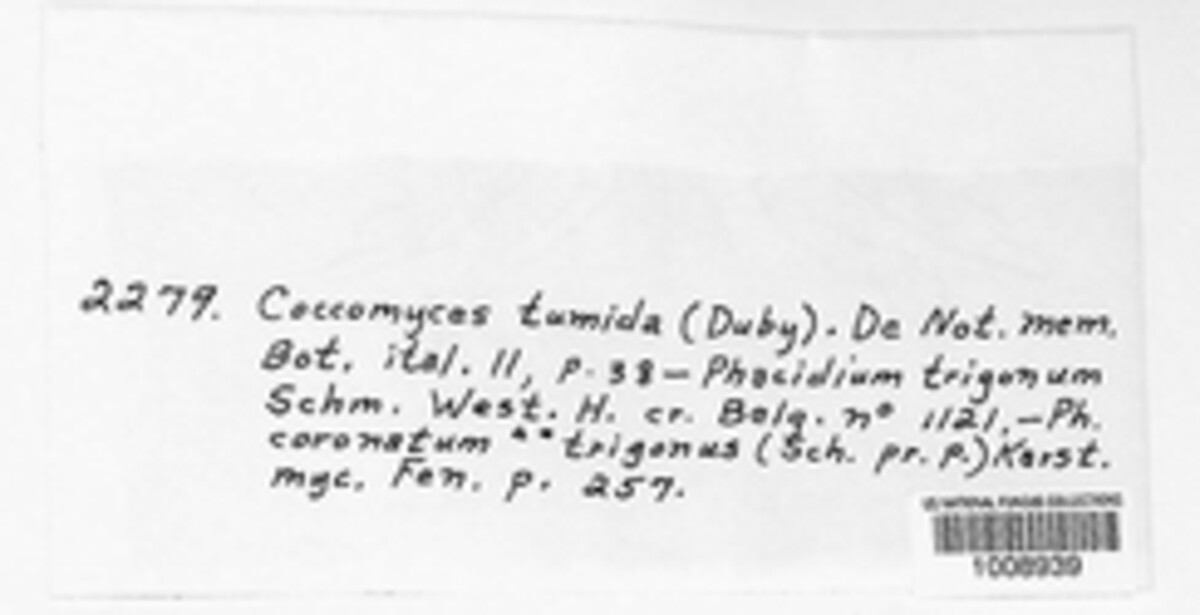 2279. Coccomyces tumida (Duby). De Not. mem.
Bot. ital. II, p. 38 — Phacidium trigonum
Schm. West. H. cr. Belg. nº 1121. — Ph.
coronatum ** trigonus (Sch. pr. p.) Karst.
myc. Fen. p. 257.
US NATIONAL FUNGUS COLLECTIONS
1008939